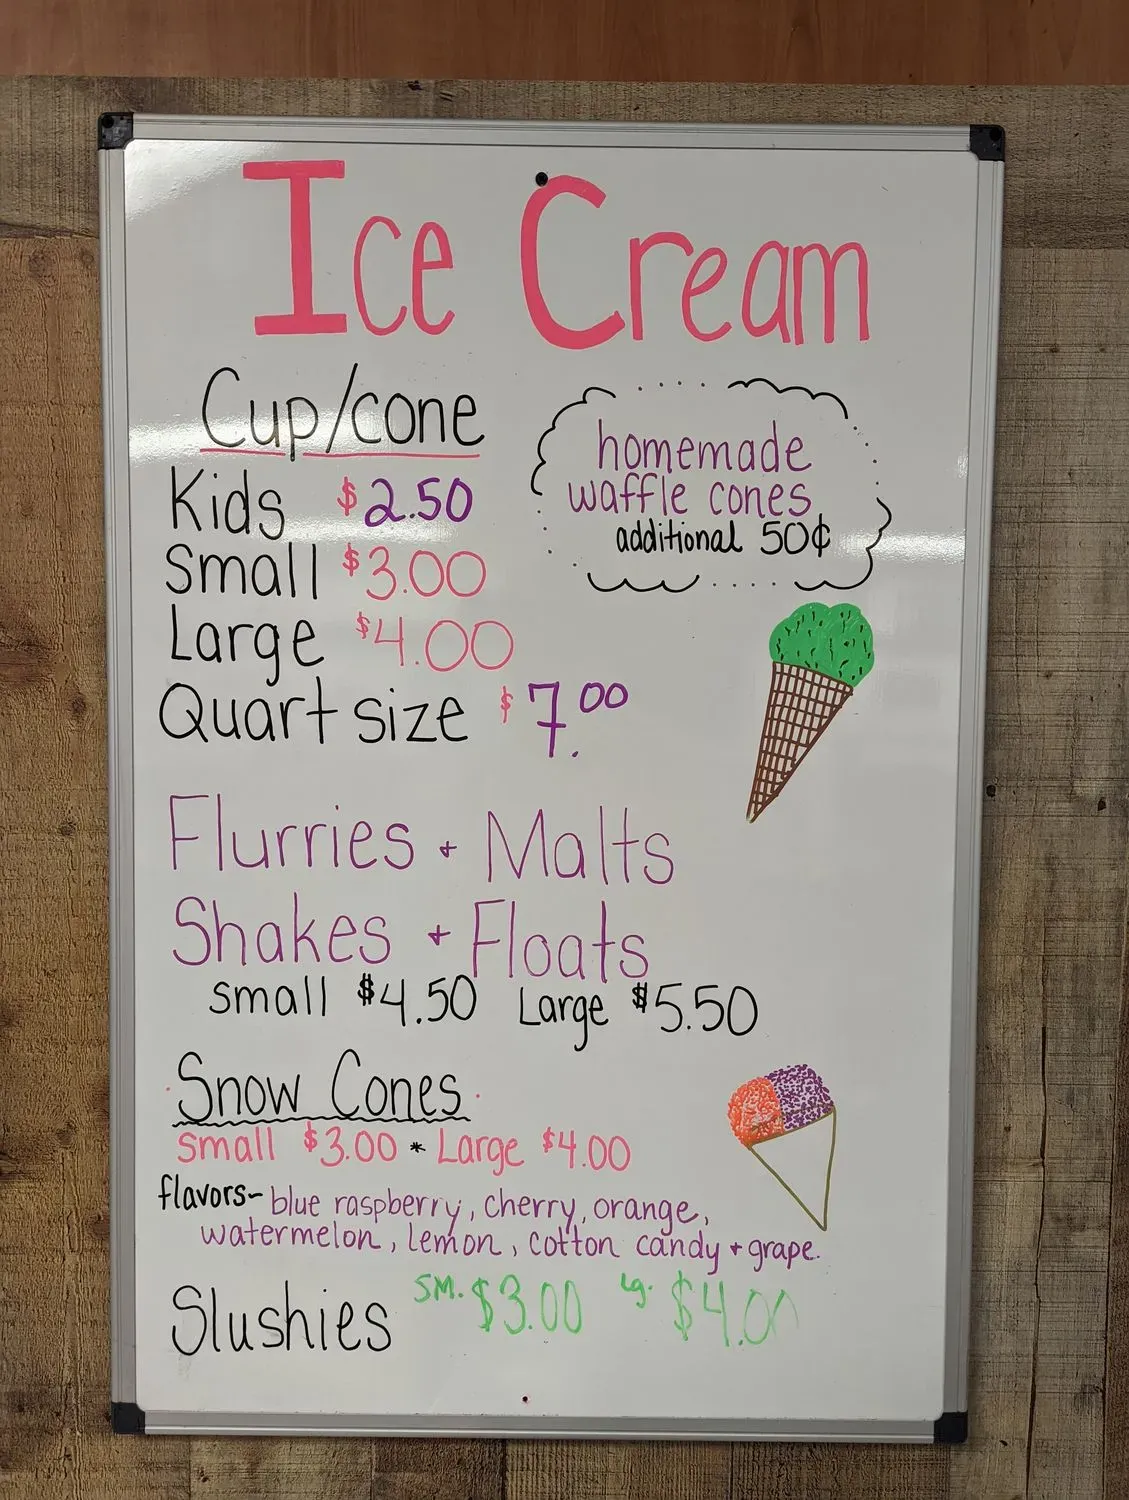 Ice Cream
Cup/cone
Kids $2.50
Small $3.00
Large $4.00
Quart size $7.00
homemade
waffle cones
additional 50¢
Flurries + Malts
Shakes + Floats
Small $4.50 Large $5.50
Snow Cones
Small $3.00 * Large $4.00
flavors~ blue raspberry, cherry, orange,
watermelon, lemon, cotton candy + grape.
Slushies SM. $3.00 Lg. $4.00